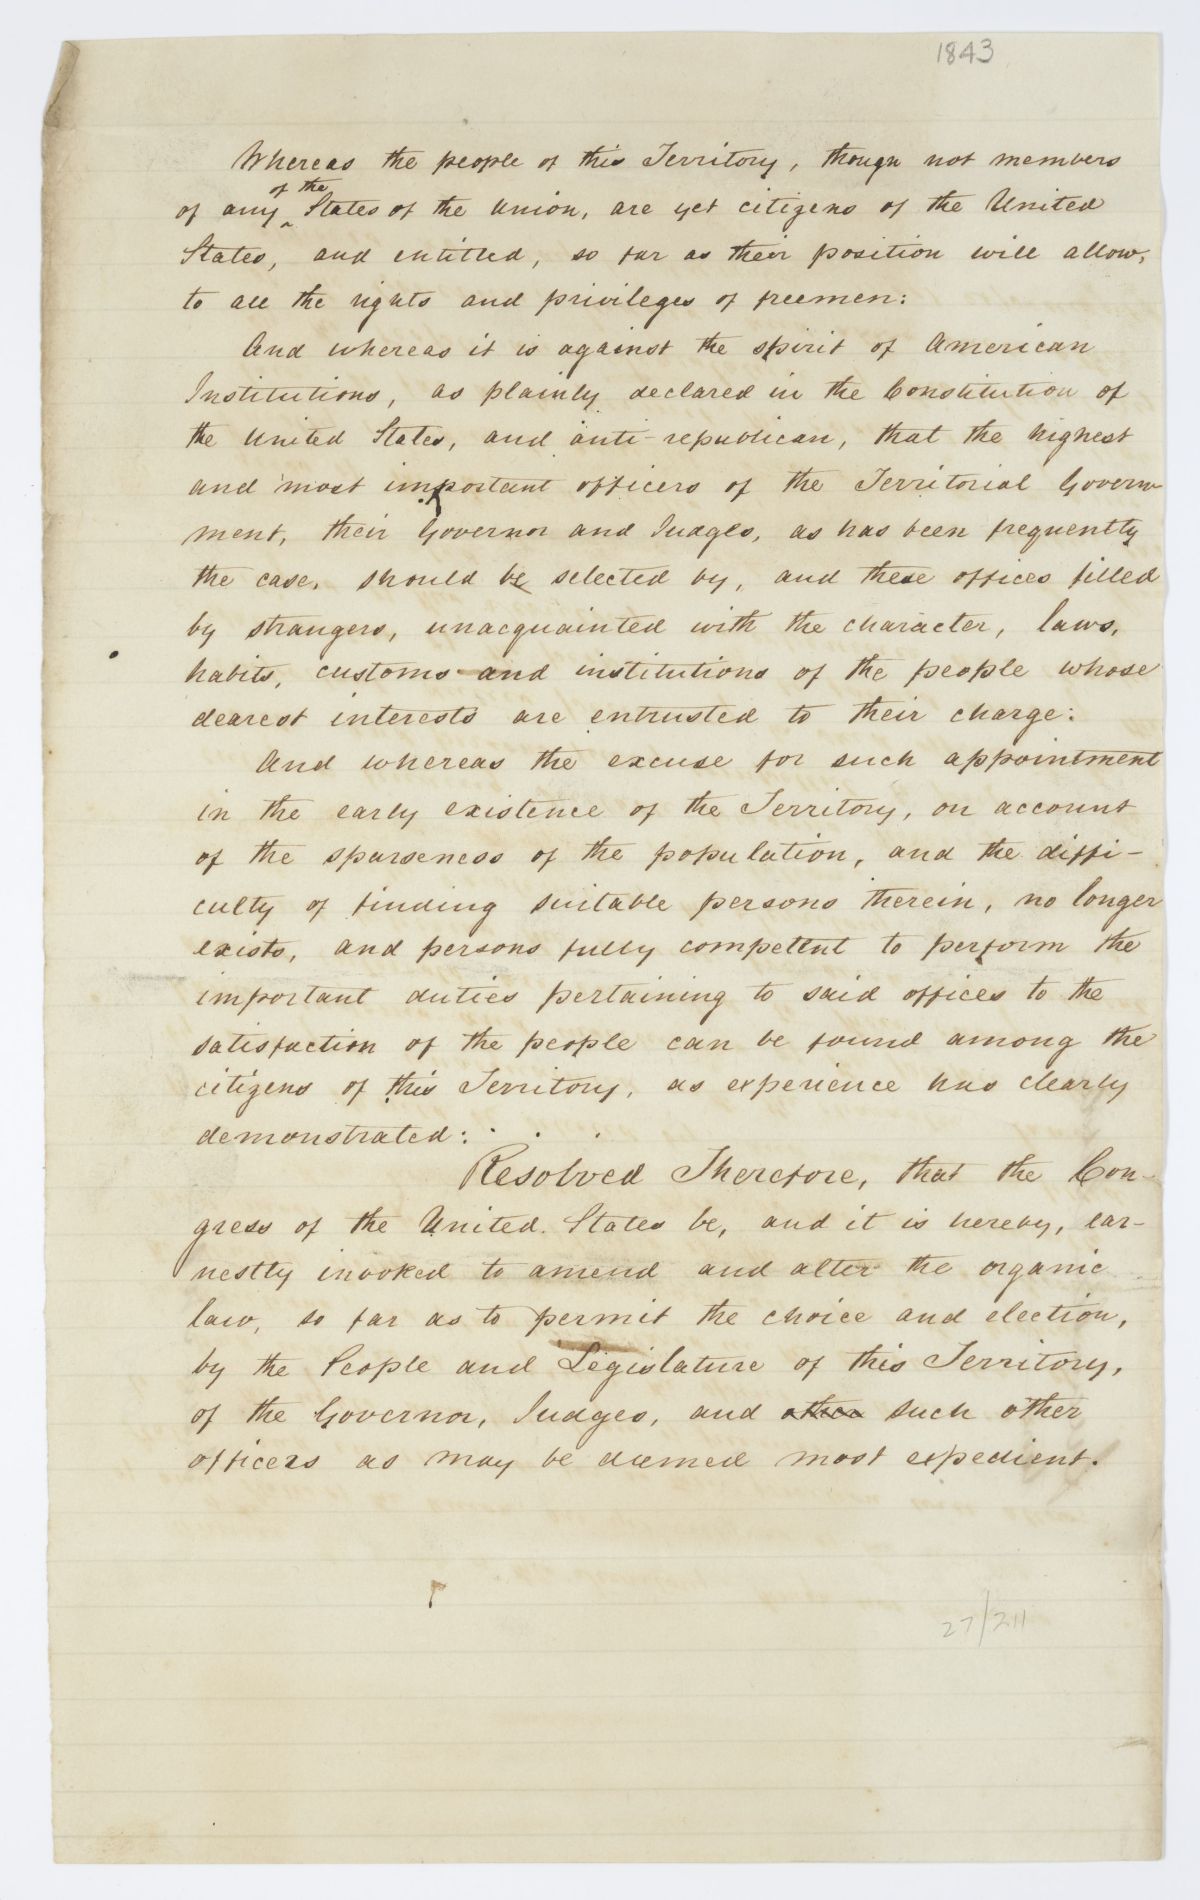 1843
Whereas the people of this Territory, though not members
of the
of any States of the Union, are yet citizens of the United
States, and entitled, so far as their position will allow,
to all the rights and privileges of freemen:
And whereas it is against the spirit of American
Institutions, as plainly declared in the Constitution of
the United States, and anti-republican, that the highest
and most important officers of the Territorial Govern-
ment, their Governor and Judges, as has been frequently
the case, should be selected by, and these offices filled
by strangers, unacquainted with the character, laws,
habits, customs and institutions of the people whose
dearest interests are entrusted to their charge:
And whereas the excuse for such appointment
in the early existence of the Territory, on account
of the sparseness of the population, and the diffi-
culty of finding suitable persons therein, no longer
exists, and persons fully competent to perform the
important duties pertaining to said offices to the
satisfaction of the people can be found among the
citizens of this Territory, as experience has clearly
demonstrated:
Resolved Therefore, that the Con-
gress of the United States be, and it is hereby, ear-
nestly invoked to amend and alter the organic
law, so far as to permit the choice and election,
by the People and Legislature of this Territory,
of the Governor, Judges, and other such other
officers as may be deemed most expedient.
27/211